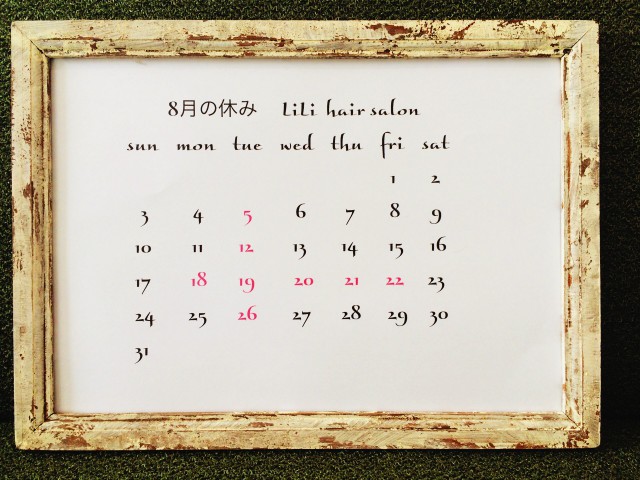 8月の休み LiLi hair salon
sun mon tue wed thu fri sat
1 2
3 4 5 6 7 8 9
10 11 12 13 14 15 16
17 18 19 20 21 22 23
24 25 26 27 28 29 30
31